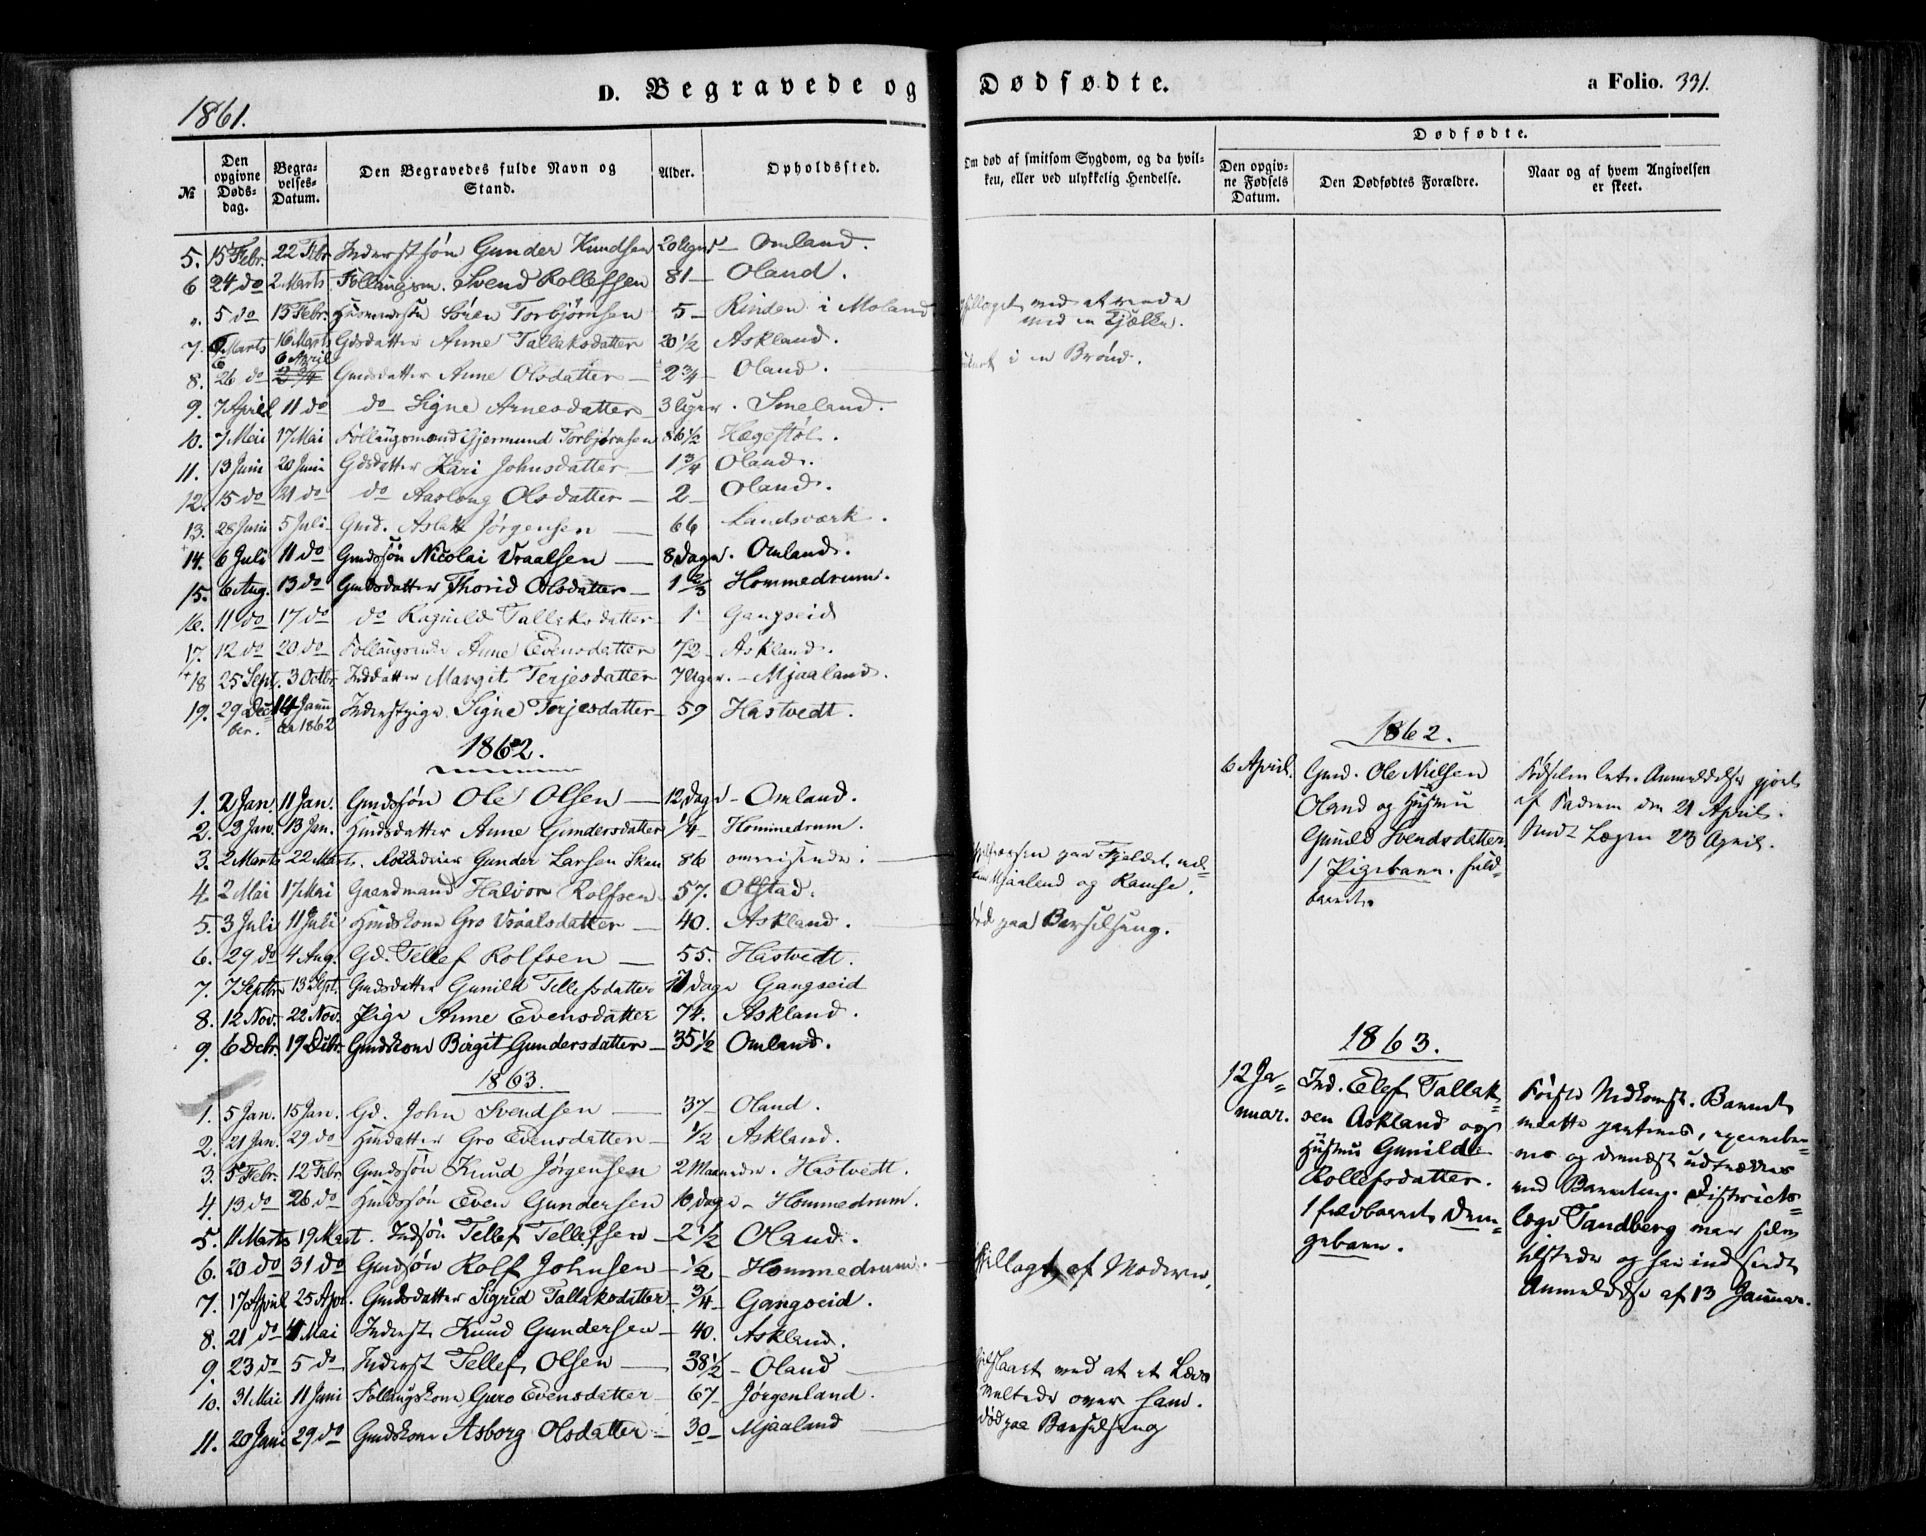 1861.
D. Begravede og Dødfødte.
a Folio. 331.
№
Den opgivne Dødsdag.
Begravelses-Datum.
Den Begravedes fulde Navn og Stand.
Alder.
Opholdssted.
Om død af smitsom Sygdom, og da hvilken, eller ved ulykkelig Hendelse.
Dødfødte.
Den opgivne Fødsels Datum.
Den Dødfødtes Forældre.
Naar og af hvem Angivelsen er skeet.
5. 15 Febr. 22 Febr Inderstsøn Gunder Knudsen Omland.
6 24 do 2 Marts Svend Rollefsen 81 — Oland.
5 do 15 Febr. Søren Torbjørnsen 5 — Rinden i Moland med en Kjælke.
7. Marts 16 Marts Gdsdatter Anne Tallaksdatter 20 1/2 Askland.
8. 26 do 6 April Gmdsdatter Anne Olsdatter — 2 3/4 — Oland. i en Brønd.
9. 7 April 11 do do Signe Arnesdatter 3 Uger. Smeland.
10. 7 Mai 17 Mai Gjermund Torbjørnsen 86 1/2 Hægestøl.
11. 13 Juni 20 Juni Gdsdatter Kari Johnsdatter — 1 3/4 Oland.
12. 15 do 21 do do Aasloug Olsdatter — 2 — Oland.
13. 28 Juni 5 Juli Gmd. Aslak Jørgensen — 66 Landsværk.
14. 6 Juli 11 do Gmdssøn Nicolai Vraalsen — 8 Dage. Omland.
15. 6 Aug. 13 do Gmdsdatter Thorid Olsdatter — 1 2/3 Hommedrum.
16. 11 do 17 do do Ragnild Tallaksdatter 1 Gangseid
17. 12 do 20 do Anne Evensdatter 72 — Askland.
18 25 Sept. 3 Octbr. Inddatter Margit Terjesdatter 7 Uger. — Mjaaland.
19. 29 December. 14 Januar 1862 Inderstpige Signe Terjesdatter — 59 Hastvedt.
1862.
1. 2 Jan 11 Jan. Gmdssøn Ole Olsen — 12 Dage — Omland.
2. 3 Jan. 13 Jan. Hmdsdatter Anne Gundersdatter 1/4 — Hommedrum.
3. 2 Marts 22 Marts. Gunder Larsen 86 omreisende. paa Fjeldet Mjaaland og Ramse.
4. 2 Mai 17 Mai Gaardmand Halvor Rolfsen 57. Olstad.
5. 3 Juli 11 Juli Hmdskone Gro Vraalsdatter — 40. Askland. død paa Barselseng.
6. 29 do 4 Aug. Gd. Tellef Rolfsen — 55. Hastvedt.
7. 7 Septbr 13 Sept. Gmdsdatter Gunild Tellefsdatter Dage Gangseid
8. 12 Nov. 22 Nov. Pige Anne Evensdatter 74. Askland.
9. 6 Decbr. 19 Decbr. Gmdskone Birgit Gundersdatter — 35 1/2 Omland.
1863.
1. 5 Jan. 15 Jan. Gd. John Svendsen — 37 — Oland.
2. 21 Jan. 29 do Hmdatter Gro Evensdatter — 1/2 Askland.
3. 5 Febr. 12 Febr. Gmdssøn Knud Jørgensen 2 Maaneder. Hastvedt.
4. 13 do 26 do Hmdssøn Even Gundersen 10 Dage — Hommedrum.
5. 11 Marts 19 Mart. Indsøn Tellef Tellefsen — 2 1/2 Oland.
6. 20 do 31 do Gmdsøn Rolf Johnsen — 1/2 — Hommedrum. af Moderen.
7. 17 April 25 Apr. Gmdsdatter Sigrid Tallaksdatter 3/4 — Gangseid.
8. 21 do 4 Mai Inderst Knud Gundersen — 40. Askland.
9. 23 do 5 do Inderst Tellef Olsen — 38 1/2 — Oland — ihjelslaaet ved at et Læs
væltede over ham.
10. 31 Mai 11 Juni Guro Evensdatter 67 — Jørgenland.
11. 20 Juni 29 do Gmdskone Asborg Olsdatter — 30 — Mjaaland død paa Barselseng
1862.
6 April. Gmd. Ole Nielsen
Oland og Hustru
Gunild Svendsdatter,
1 Pigebarn. fuld-
baaret.
Anmeldelse gjort
af Faderen den 21 April.
Sendt Lægen 23 April.
1863.
12 Ja-
nuar.
Ind. Elef Tallak-
sen Askland og
Hustru Gunild
Rollefsdatter.
1 fuldbaaret Dren-
gebarn.
Første Nedkomst. Barnet
maatte
og dernæst udtrækkes
ved Districts-
læge Tandberg var selv
tilstede og har indsendt
Anmeldelse af 13 Januar.